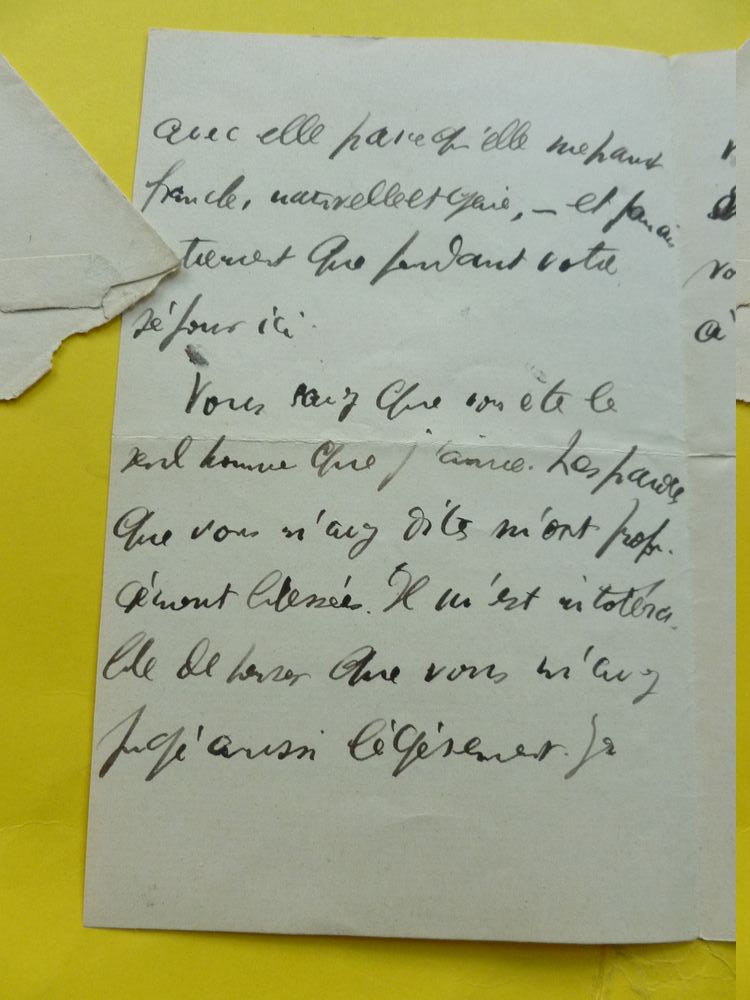 avec elle parce qu'elle me parait
franche, naturelle et gaie, — et
que pendant votre
séjour ici.
Vous savez que vous ête le
seul homme que j'aime. Les paroles
que vous m'avez dites m'ont prof-
blessées. Il m'est intoléra-
ble de penser que vous m'avez
jugé aussi légèrement. Je